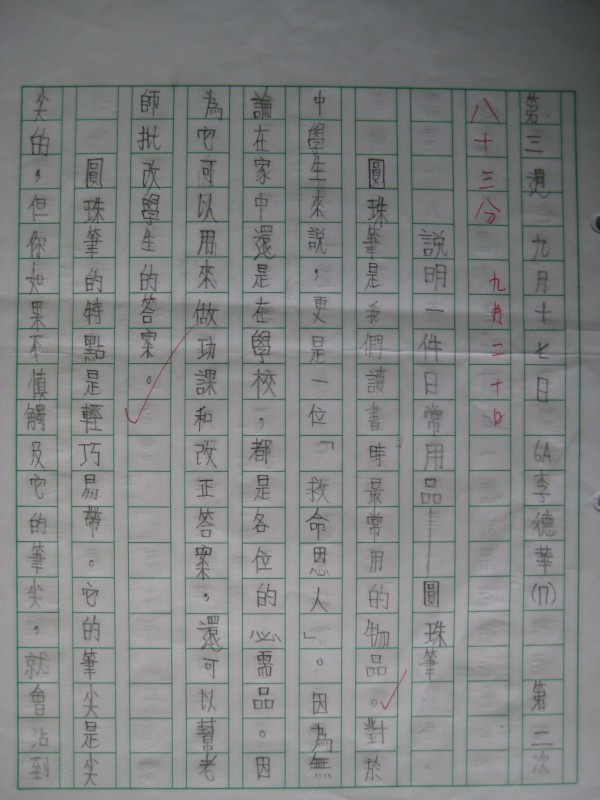 第三週 九月十七日 6A李德華(17) 第二次
八十三分 九月二十日
說明一件日常用品——圓珠筆
圓珠筆是我們讀書時最常用的物品。對於
中學生來說，更是一位「救命恩人」。因為無
論在家中還是在學校，都是各位的必需品。因
為它可以用來做功課和改正答案，還可以幫老
師批改學生的答案。
圓珠筆的特點是輕巧易帶。它的筆尖是尖
尖的，但你如果不慎觸及它的筆尖，就會沾到